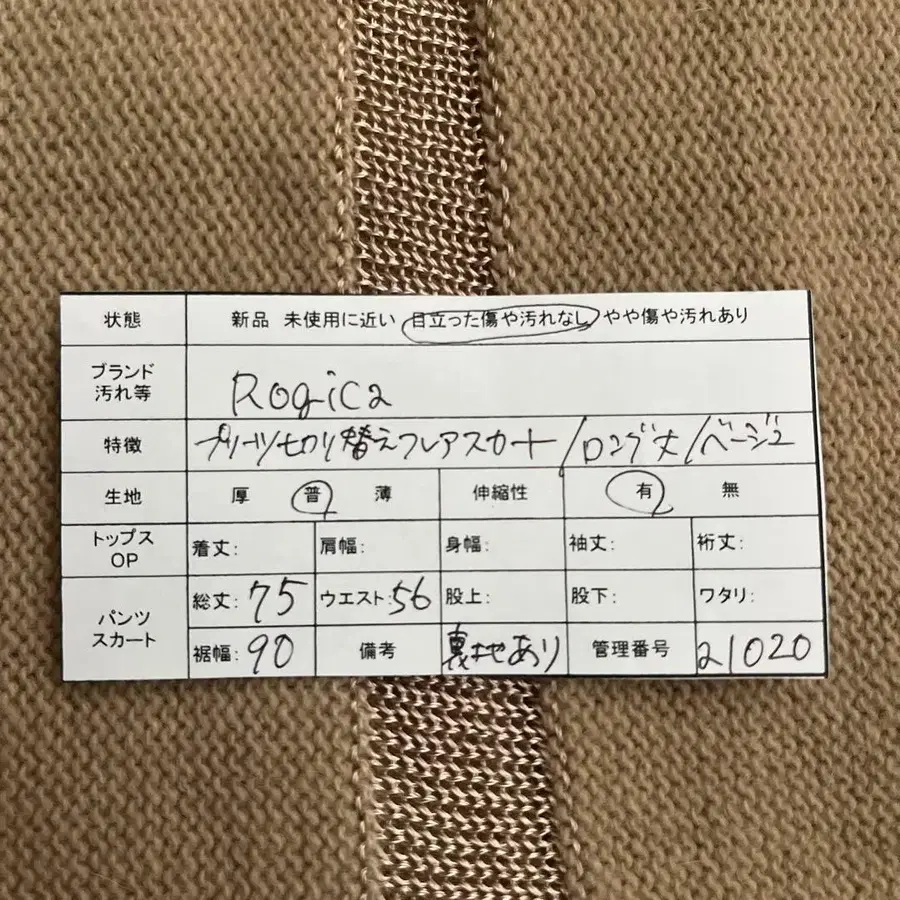 状態 新品 未使用に近い 目立った傷や汚れなし やや傷や汚れあり
ブランド
汚れ等 Rogica
特徴 プリーツ切り替えフレアスカート/ロング丈/ベージュ
生地 厚 普 薄 伸縮性 有 無
トップス
OP 着丈: 肩幅: 身幅: 袖丈: 裄丈:
パンツ
スカート 総丈:75 ウエスト:56 股上: 股下: ワタリ:
裾幅:90 備考 裏地あり 管理番号 21020